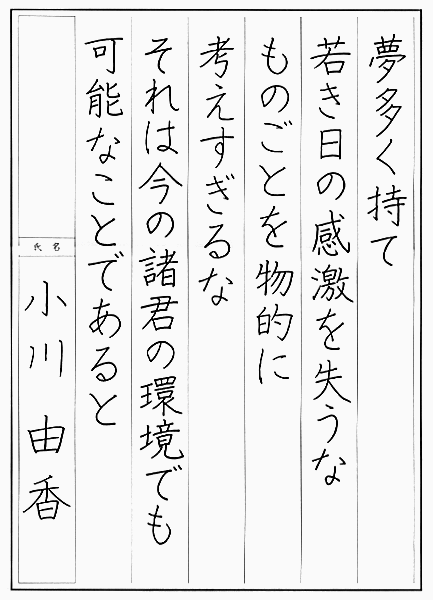 夢多く持て
若き日の感激を失うな
ものごとを物的に
考えすぎるな
それは今の諸君の環境でも
可能なことであると
氏名
小川由香